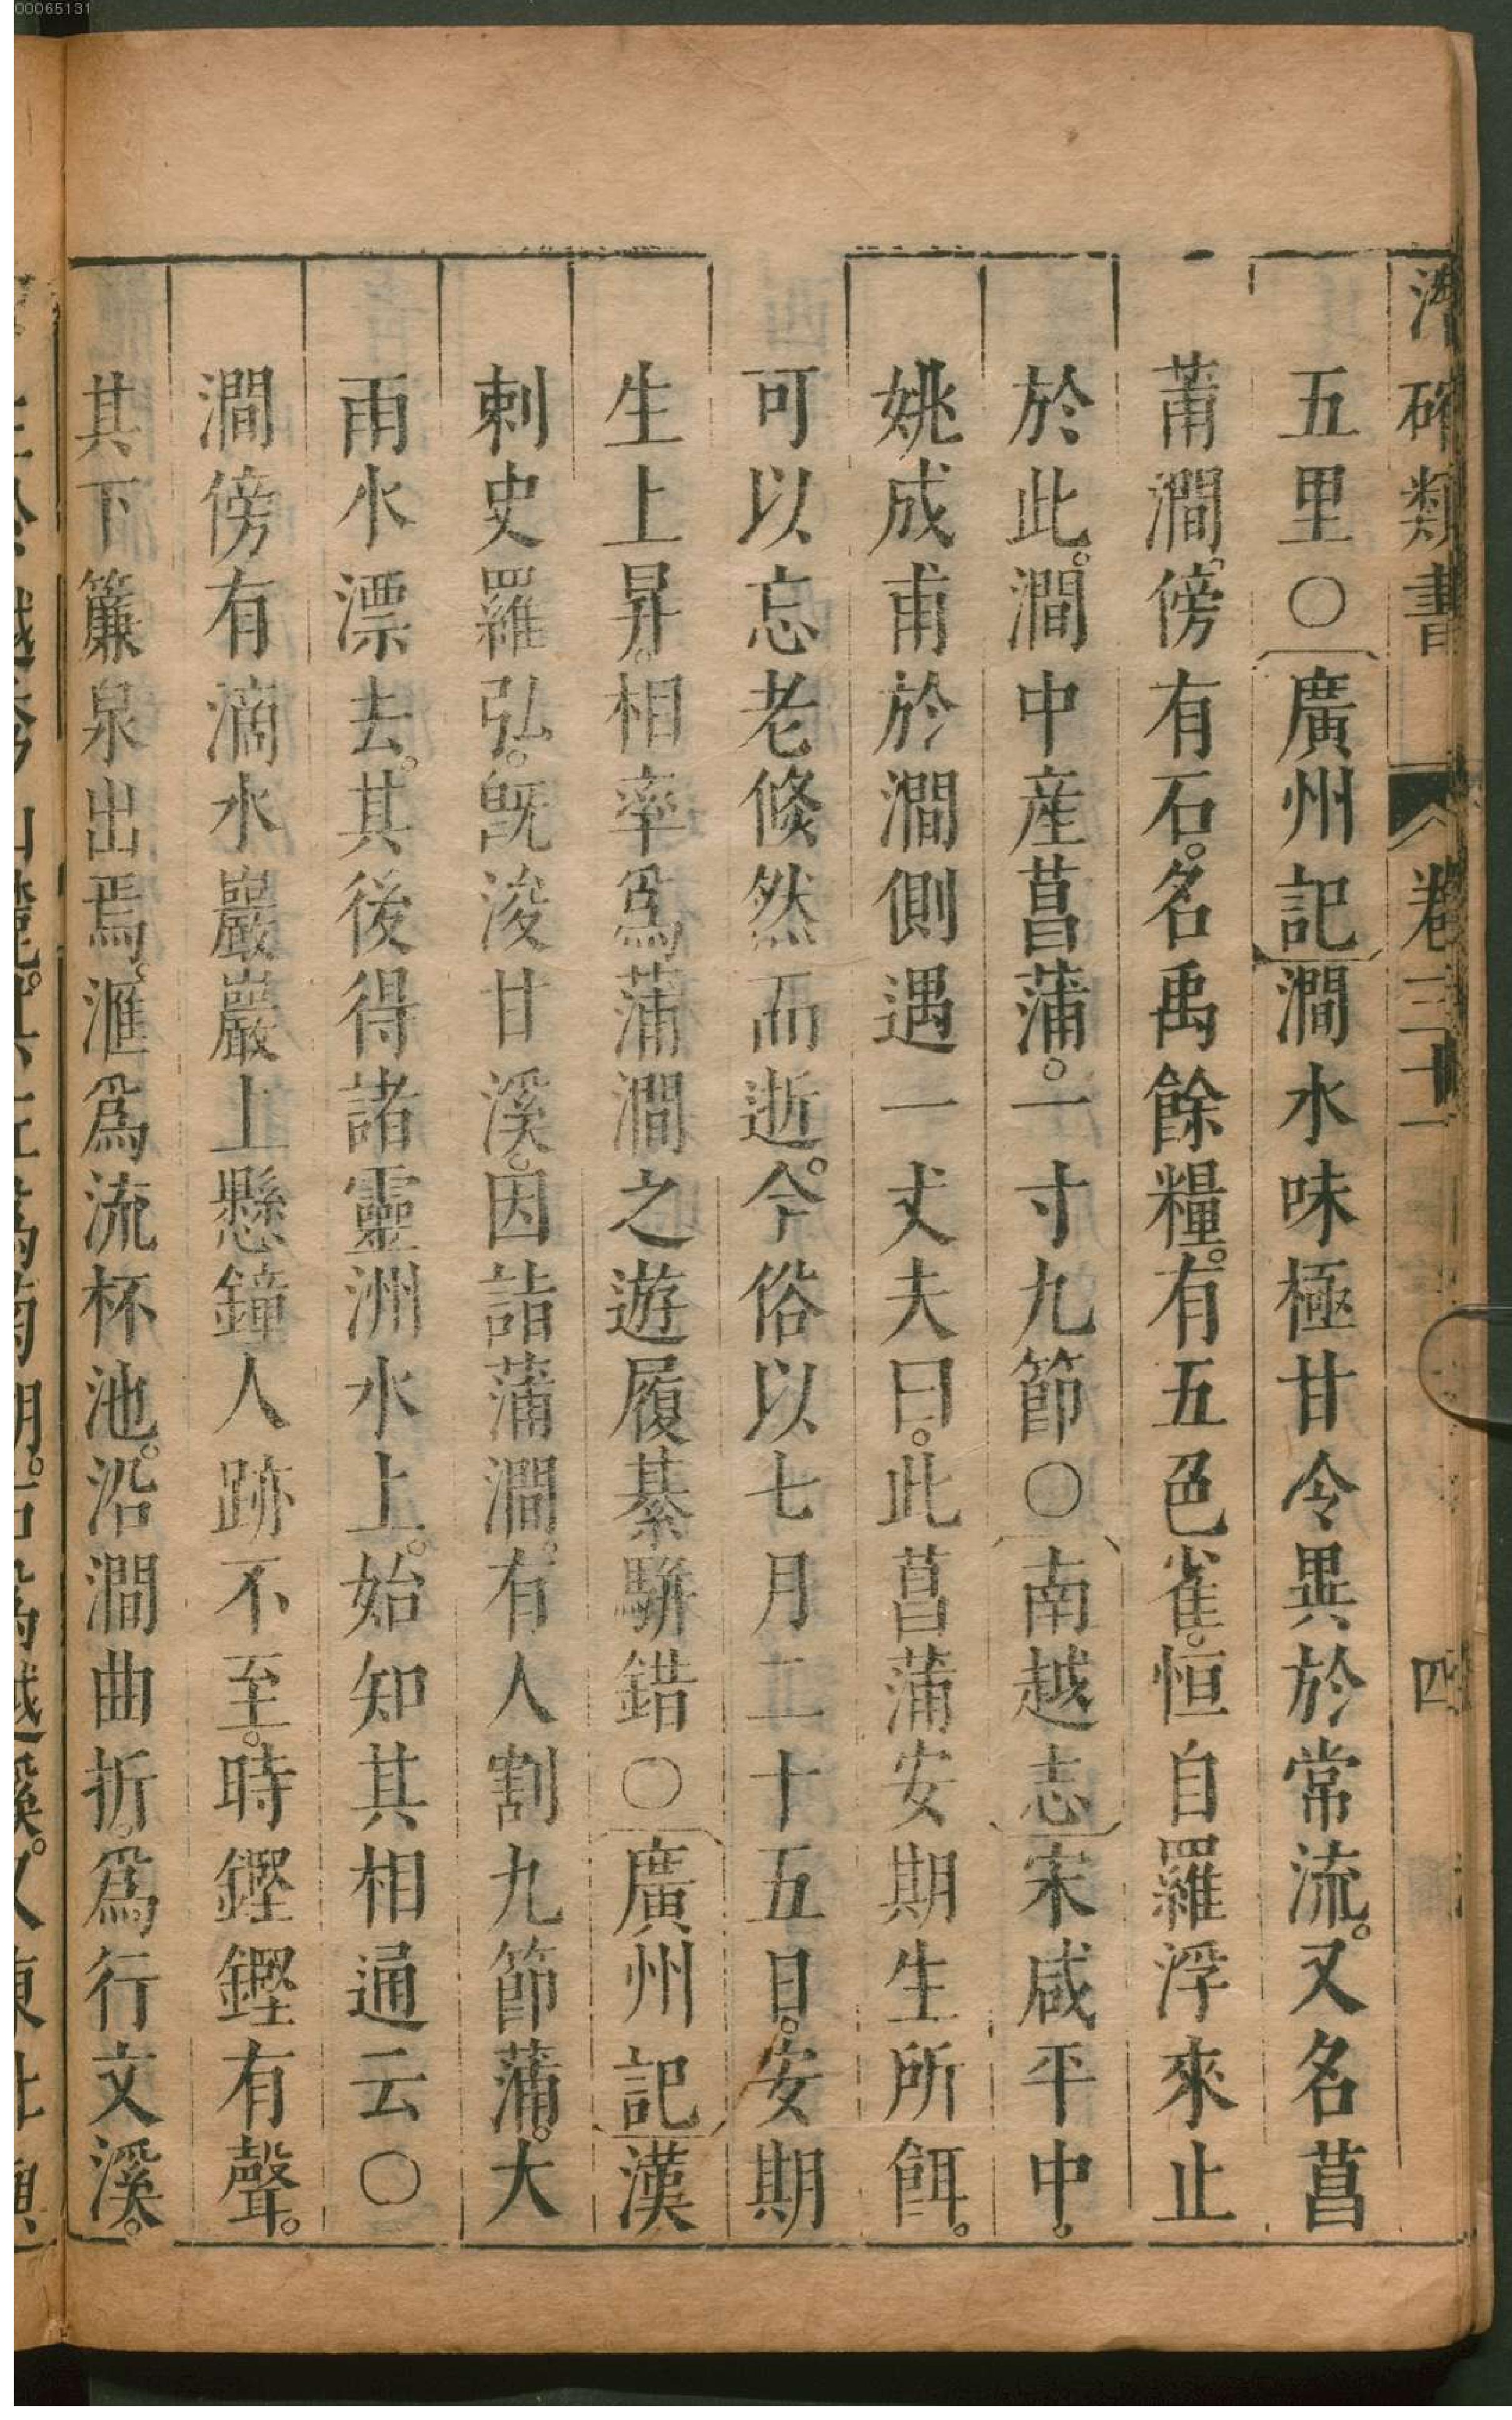 00065131
潛確類書 卷三十一 四
五里○〔廣州記〕澗水味極甘令異於常流。又名菖
莆澗。傍有石。名禹餘糧。有五色雀。恒自羅浮來止
於此。澗中産菖蒲。一寸九節○〔南越志〕宋咸平中，
姚成甫於澗側遇一丈夫曰。此菖蒲安期生所餌。
可以忘老倐然而逝。今俗以七月二十五日。安期
生上昇。相率爲蒲澗之遊履綦駢錯○〔廣州記〕漢
刺史羅弘。旣浚甘溪。因詣蒲澗。有人割九節蒲。大
雨水漂去。其後得諸靈洲水上。始知其相通云○
澗傍有滴水巖巖上懸鐘人跡不至。時鏗鏗有聲。
其下簾泉出焉。滙爲流杯池。沿澗曲折。爲行文溪。